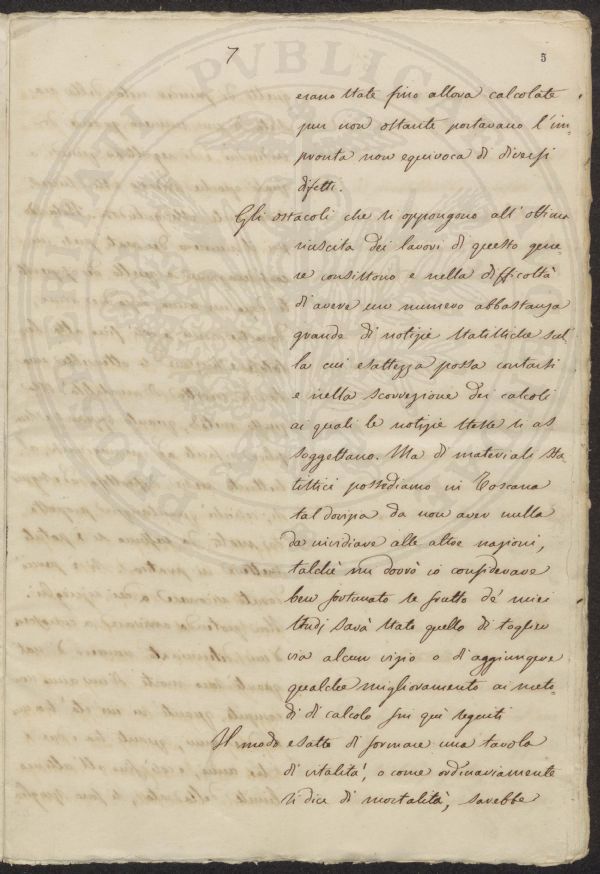 7
5
erano state fino allora calcolate
pur non ostante portavano l'im=
pronta non equivoca di diversi
difetti.
Gli ostacoli che si oppongono all'ottima
riuscita dei lavori di questo gene=
re consistono e nella difficoltà
di avere un numero abbastanza
grande di notizie statistiche sul=
la cui esattezza possa contarsi
e nella scorrezione dei calcoli
ai quali le notizie stesse si as
soggettano. Ma di materiali sta=
tistici possediamo in Toscana
tal dovizia da non aver nulla
da invidiare alle altre nazioni,
talchè mi dovrò io considerare
ben fortunato se frutto de' miei
studj sarà stato quello di togliere
via alcun vizio o di aggiungere
qualche miglioramento ai meto=
di di calcolo fin quì seguiti
Il modo esatto di formare una tavola
di vitalità, o come ordinariamente
si dice di mortalità, sarebbe